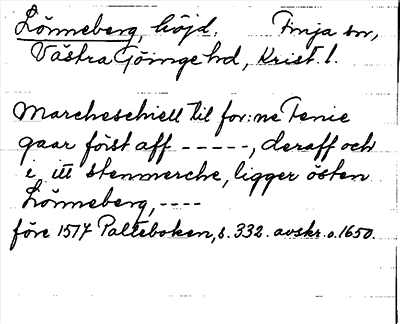 Lönneberg, höjd. Finja sn,
Västra Göinge hd, Krist. l.
Marcheschiell til for:ne Fenie
gaar först aff - - - - -, deraff och
i itt stenmerche, ligger östen
Lönneberg, - - - -
före 1517 Palteboken, s. 332. avskr. o. 1650.